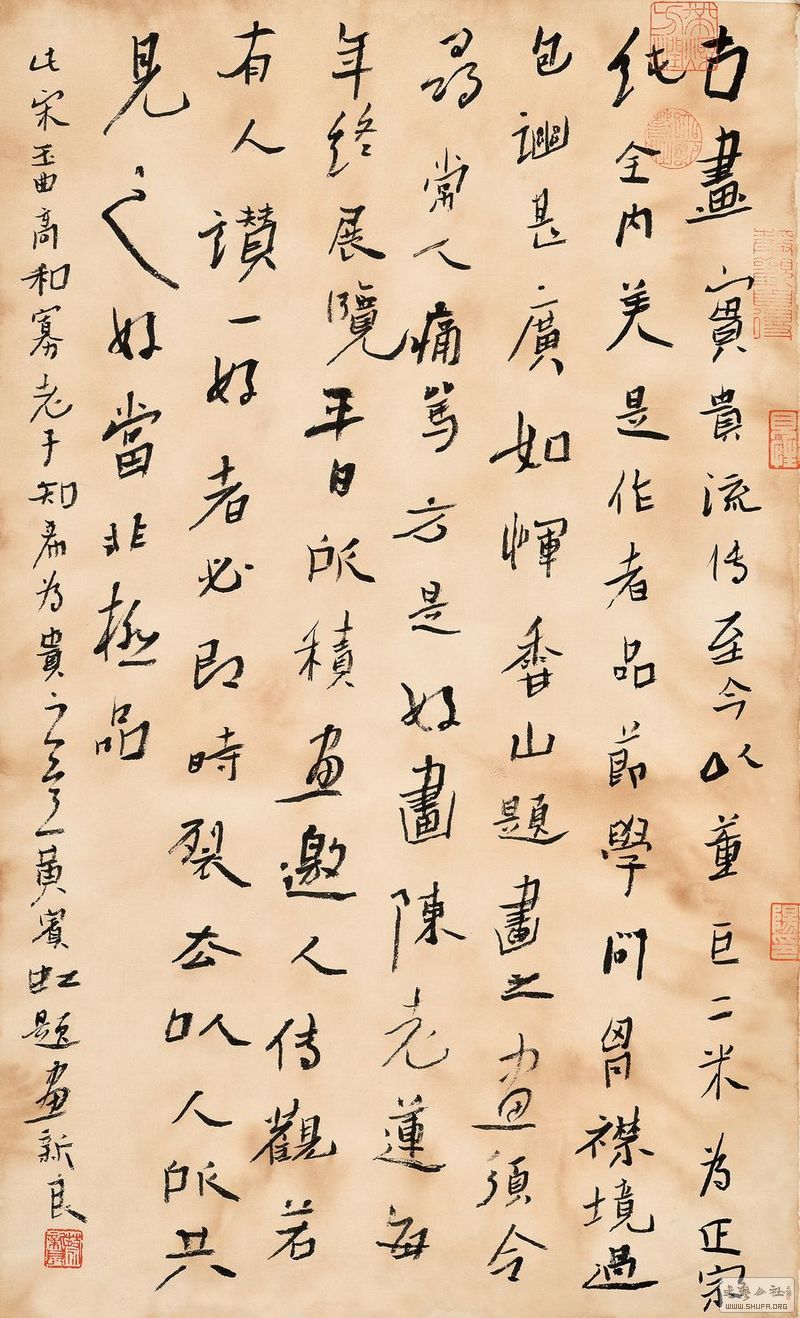 古畫實貴流传至今以董巨二米为正宗
純全內美是作者品節學問胷襟境過
包甚廣如惲香山題畫之畫須令
尋常人痛罵方是好畫陳老蓮每
年終展覽平日所積畫邀人傳觀若
有人讚一好者必即時裂去以人所共
見之好當非極品
此宋玉曲高和寡老子知希为貴之意黃賓虹題畫新良
书艺公社
WWW.SHUFA.ORG